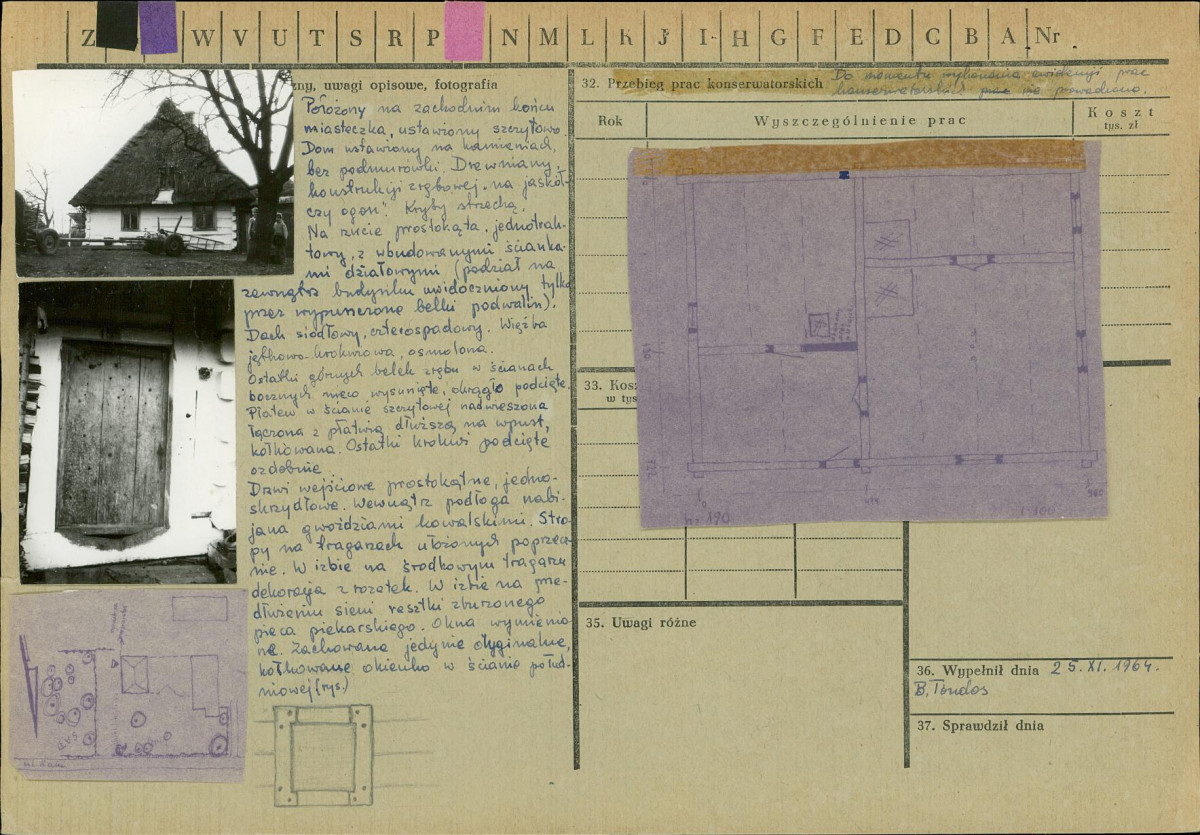 Z W V U T S R P N M L K J I H G F E D C B A Nr
zny, uwagi opisowe, fotografia
Położony na zachodnim końcu
miasteczka, ustawiony szczytowo.
Dom ustawiony na kamieniach,
bez podmurówki. Drewniany,
konstrukcji zrębowej „na jaskół-
czy ogon". Kryty strzechą.
Na rzucie prostokąta, jednotrak-
towy, z wbudowanymi ścianka-
mi działowymi (podział na
zewnątrz budynku uwidoczniony tylko
przez wypuszczone belki podwalin).
Dach siodłowy, czterospadowy. Więźba
jętkowo-krokwiowa, osmolona.
Ostatki górnych belek zrębu w ścianach
bocznych nieco wysunięte, okrągło podcięte.
Płatew w ścianie szczytowej nadwieszona
łączona z płatwią dłuższą na wpust,
kołkowana. Ostatki krokwi podcięte
ozdobnie.
Drzwi wejściowe prostokątne, jedno-
skrzydłowe. Wewnątrz podłoga nabi-
jana gwoździami kowalskimi. Stro-
py na tragarzach ułożonych poprzecz-
nie. W izbie na środkowym tragarzu
dekoracja z rozetek. W izbie na prze-
dłużeniu sieni resztki zburzonego
pieca piekarskiego. Okna wymienio-
ne. Zachowane jedynie oryginalne,
kołkowane okienko w ścianie połud-
niowej (rys.)
SAD
32. Przebieg prac konserwatorskich Do momentu wykonania ewidencji prac
konserwatorskich nie prowadzono.
Rok
Wyszczególnienie prac
Koszt
tys. zł
33. Kosz
w tys
h=190
1:100
980
35. Uwagi różne
36. Wypełnił dnia 25.XI.1964.
B. Tondos
37. Sprawdził dnia